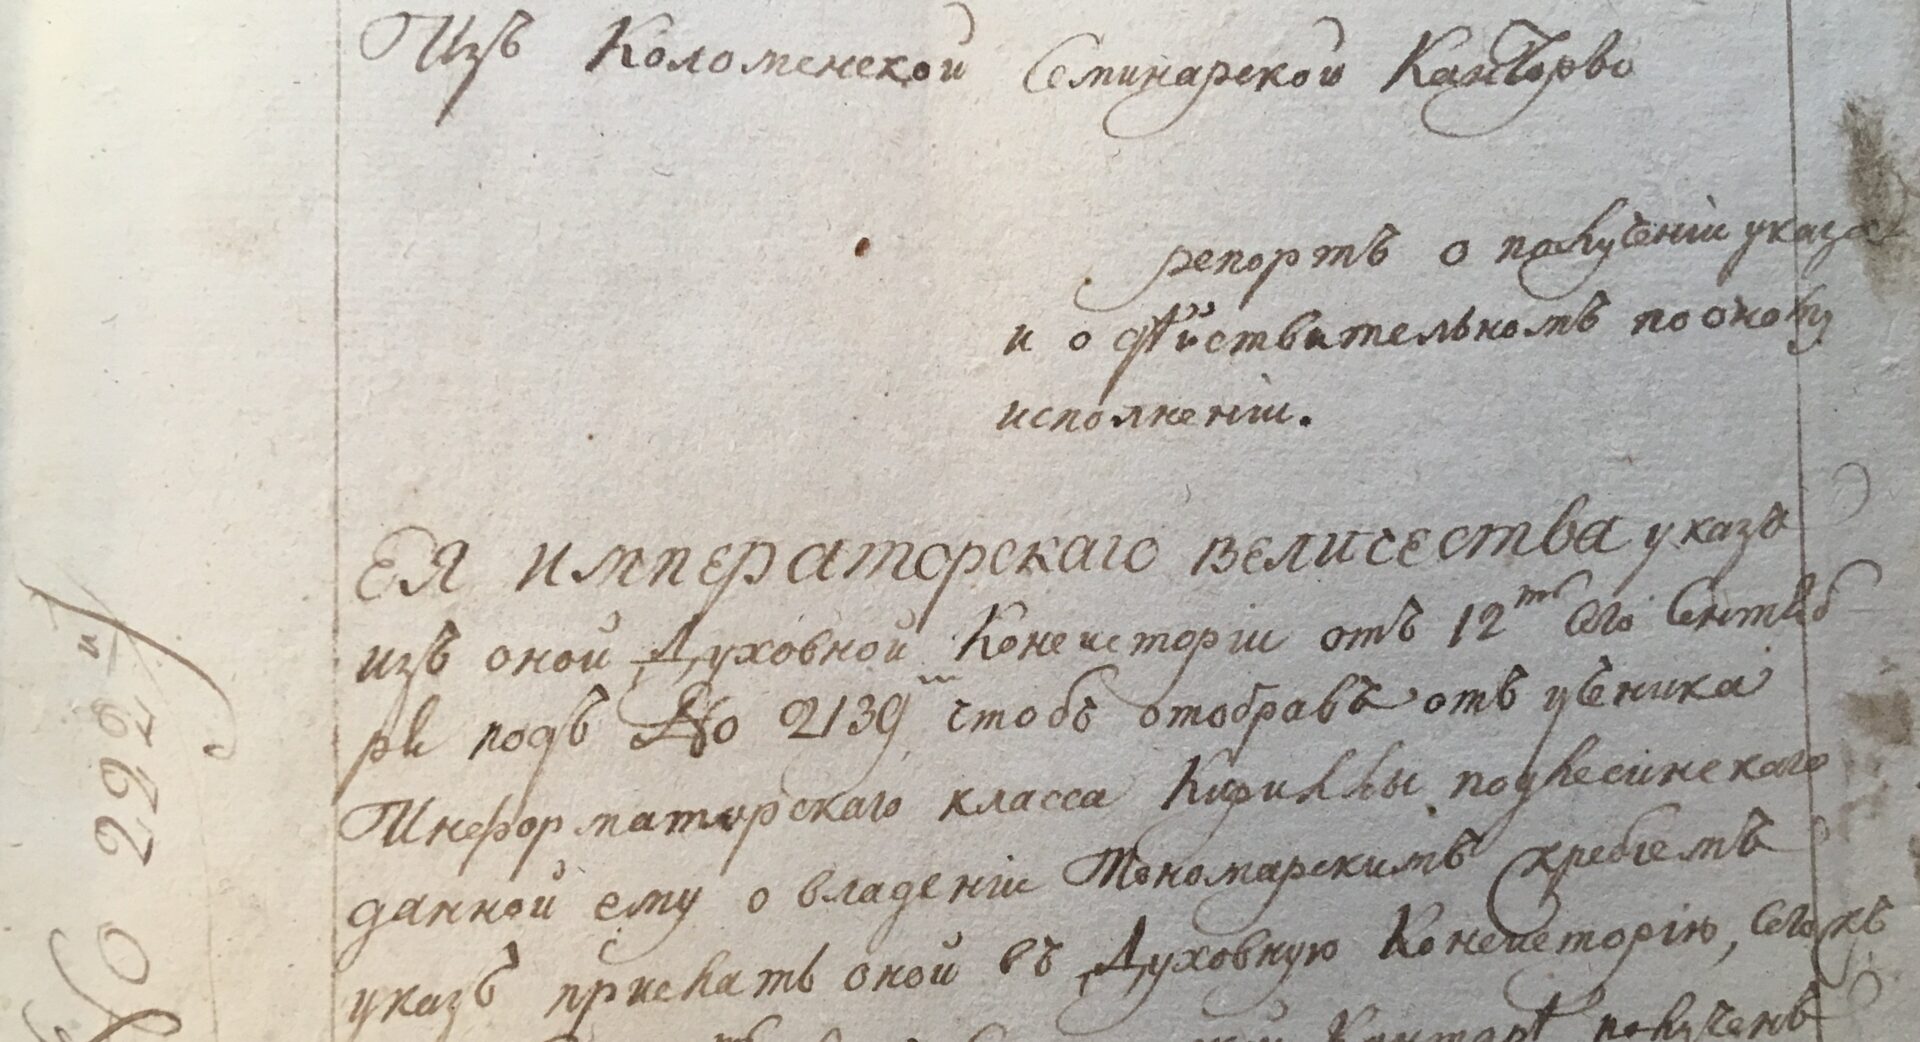 Изъ Коломенской Семинарской Канторы
репортъ о полученіи указа
и о дѣйствительномъ по оному
исполненіи.
ЕЯ ИМПЕРАТОРСКАГО ВЕЛИЧЕСТВА указъ
изъ оной Духовной Консисторіи отъ 12го сего Сентяб
ря подъ No 2139 чтобъ отобравъ отъ ученика
Информаторскаго класса Кириллы подлесинскаго
данной ему о владеніи Пономарскимъ жребіемъ
указъ прислать оной въ Духовную Консисторію,
Канторѣ полученъ
No 222